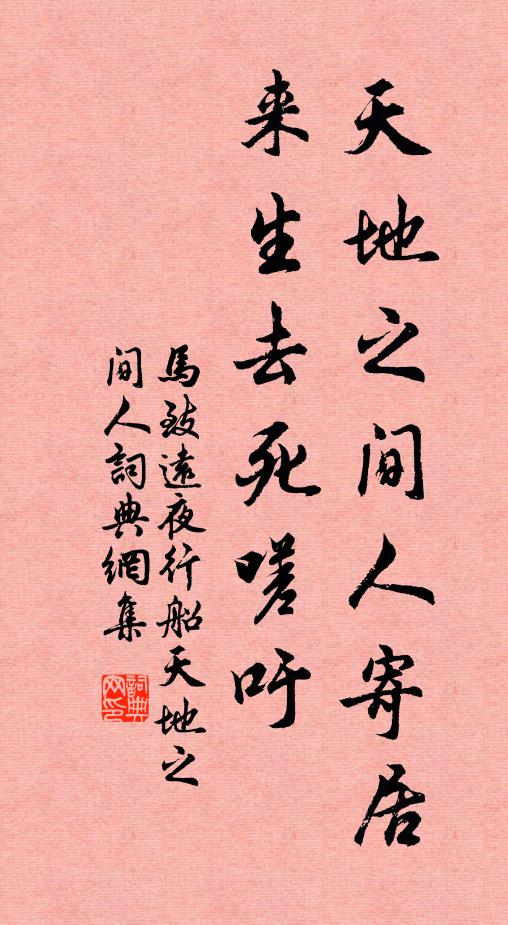 天地之间人寄居
来生去死嗟吁
馬致遠夜行船天地之
间人詞典網集
詞典网印